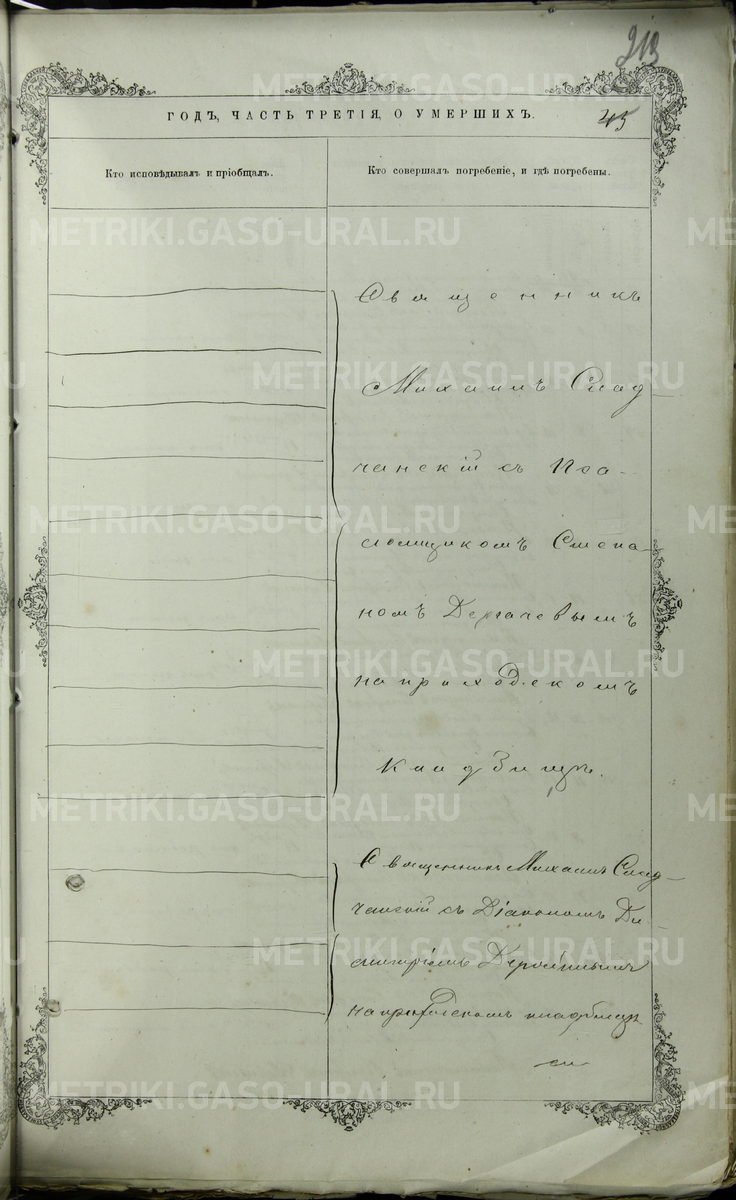 213
ГОДЪ, ЧАСТЬ ТРЕТІЯ, О УМЕРШИХЪ.
45
Кто исповѣдывалъ и пріобщалъ.
Кто совершалъ погребеніе, и гдѣ погребены.
Священникъ
Михаилъ Слад-
чанскій съ Пса-
ломщикомъ Степа-
номъ Дергачевымъ
на приходскомъ
кладбищѣ.
Священникъ Михаилъ Слад-
чанскій съ Діакономъ Ди-
митріемъ
на приходскомъ кладбищѣ
METRIKI.GASO-URAL.RU